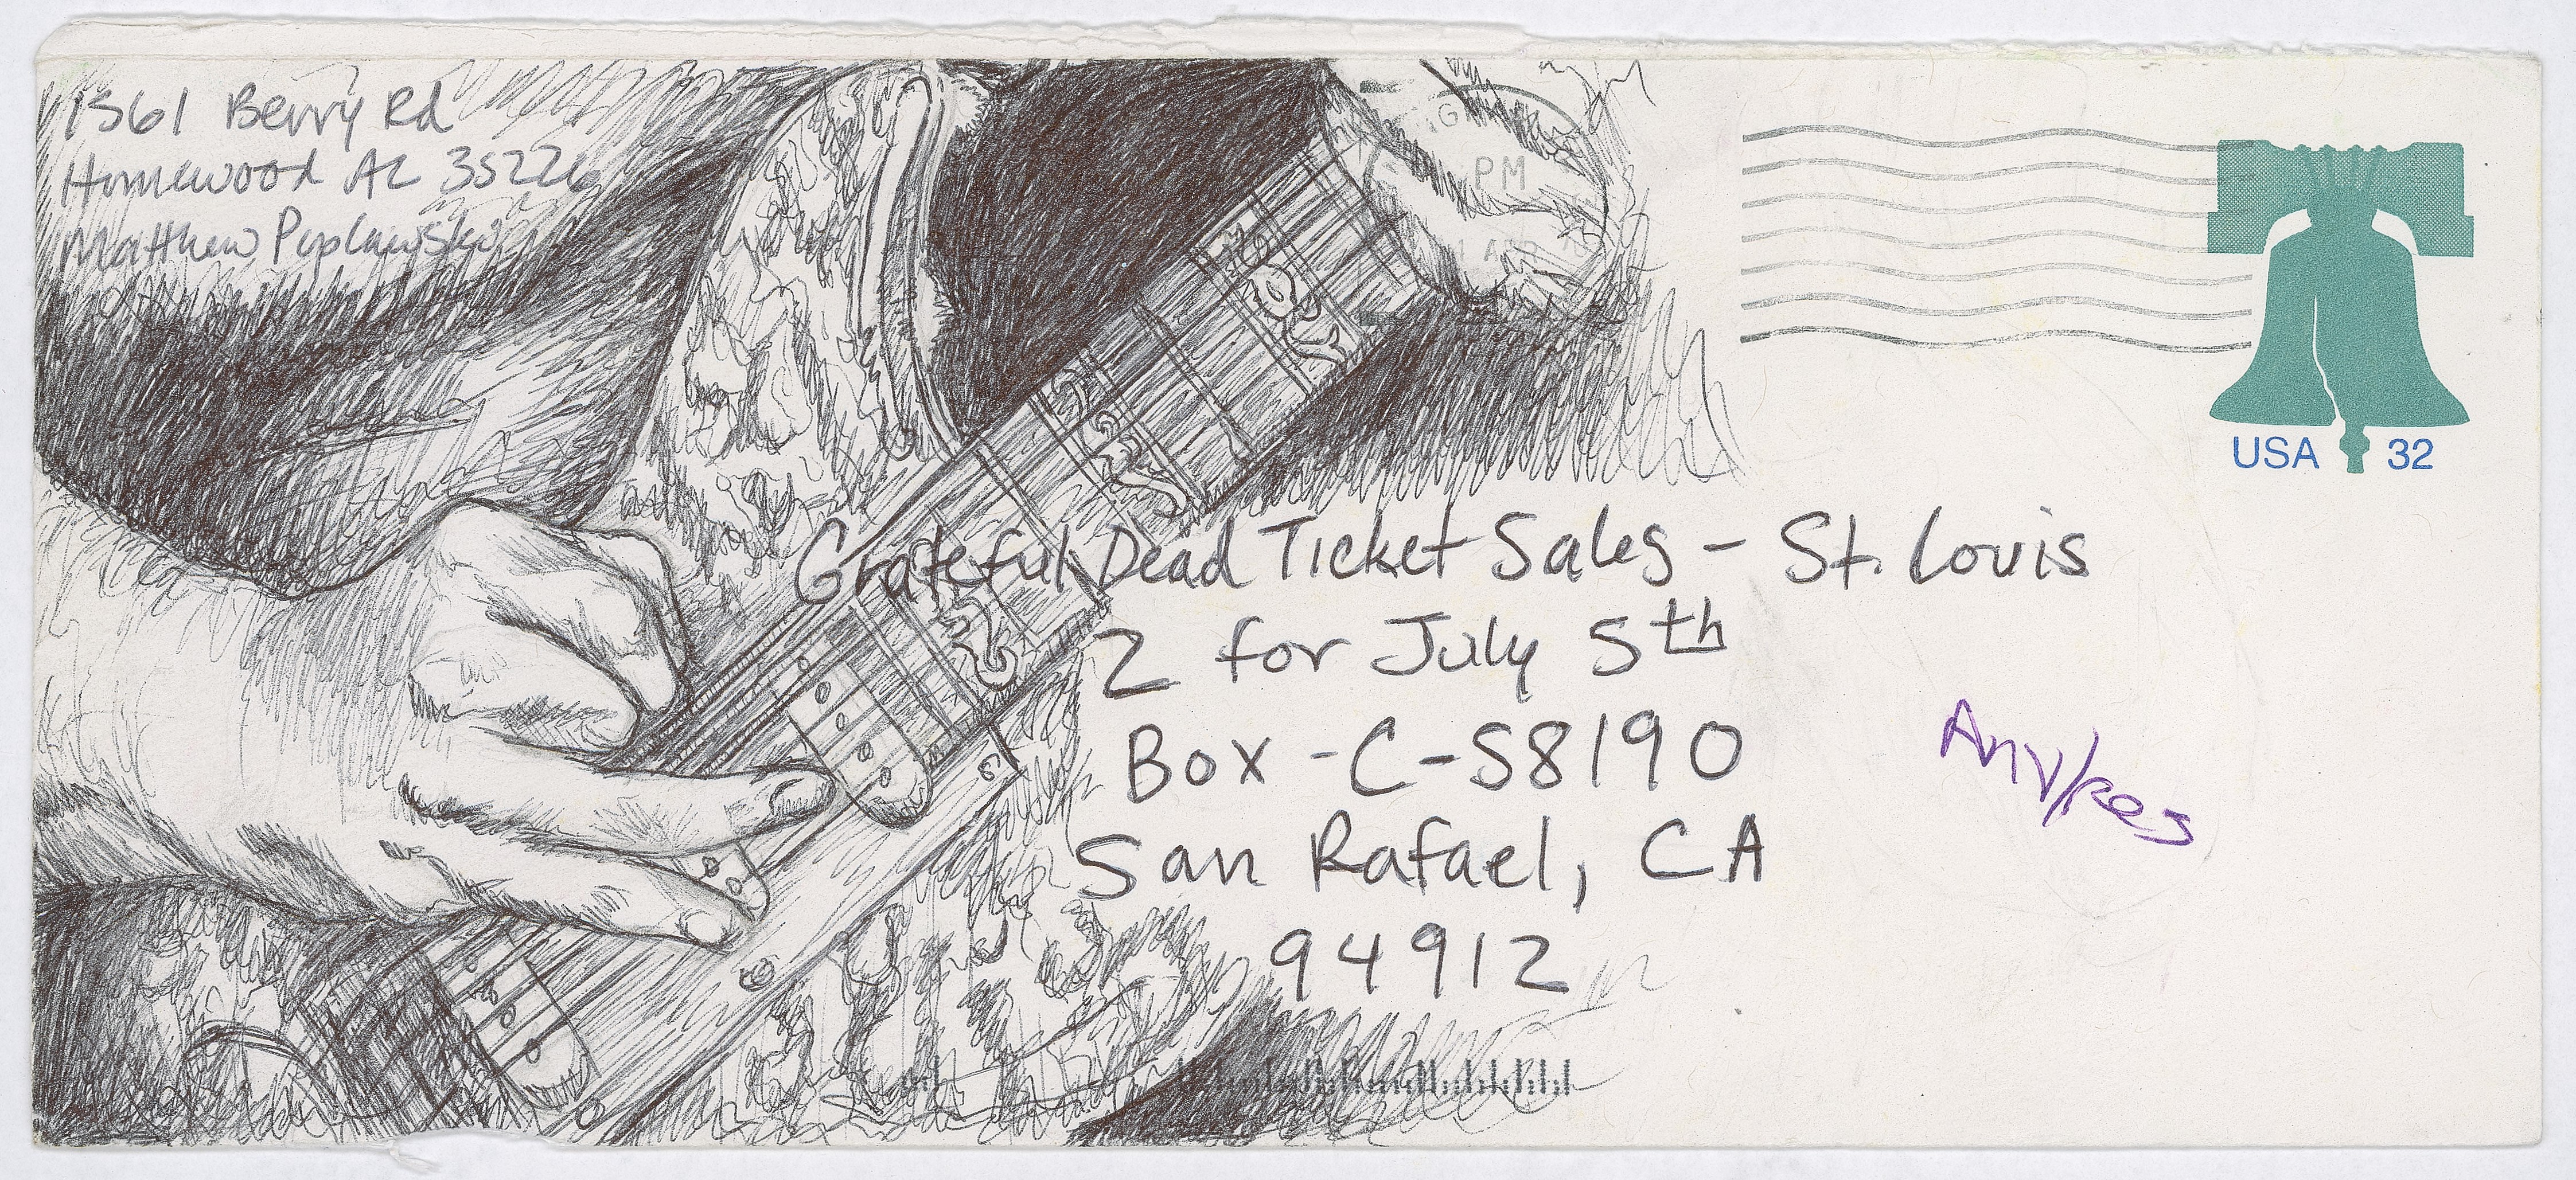 1561 Berry Rd
Homewood AL 35226
Matthew
PM
USA 32
Grateful Dead Ticket Sales - St. Louis
2 for July 5th
Box - C-S8190
San Rafael, CA
94912